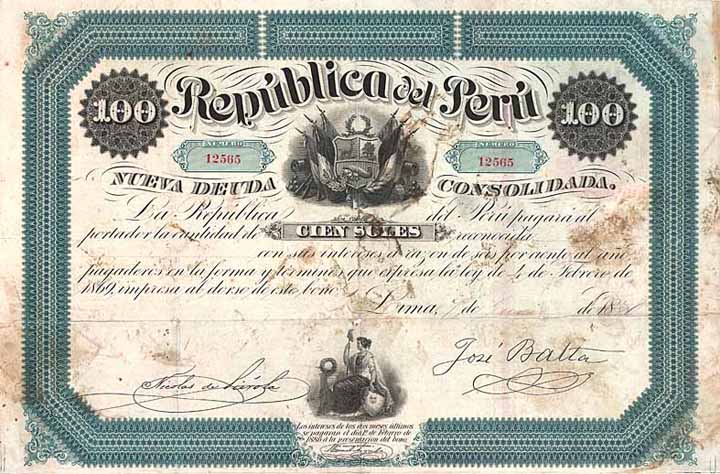 República del Perú
100 100
NUMERO NUMERO
12565 12565
NUEVA DEUDA CONSOLIDADA.
La República del Perú pagará al
portador la cantidad de CIEN SOLES reconocida
con sus intereses á razon de seis por ciento al año
pagaderos en la forma y términos que espresa la ley de 4 de Febrero de
1869, impresa al dorso de este bono
Lima, de de
José Balta
Nicolas de Piérola
Los intereses de los seis meses últimos
se pagarán el dia 1º de Febrero de
1880 á la presentacion del bono